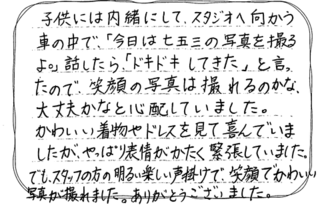 子供には内緒にして、スタジオへ向かう
車の中で、「今日は七五三の写真を撮る
よ。」話したら、「ドキドキしてきた」と言っ
たので、笑顔の写真は撮れるのかな、
大丈夫かなと心配していました。
かわいい着物やドレスを見て喜んでいま
したが、やっぱり表情がかたく緊張していました。
でも、スタッフの方の明るい楽しい声掛けで、笑顔でかわいい
写真が撮れました。ありがとうございました。